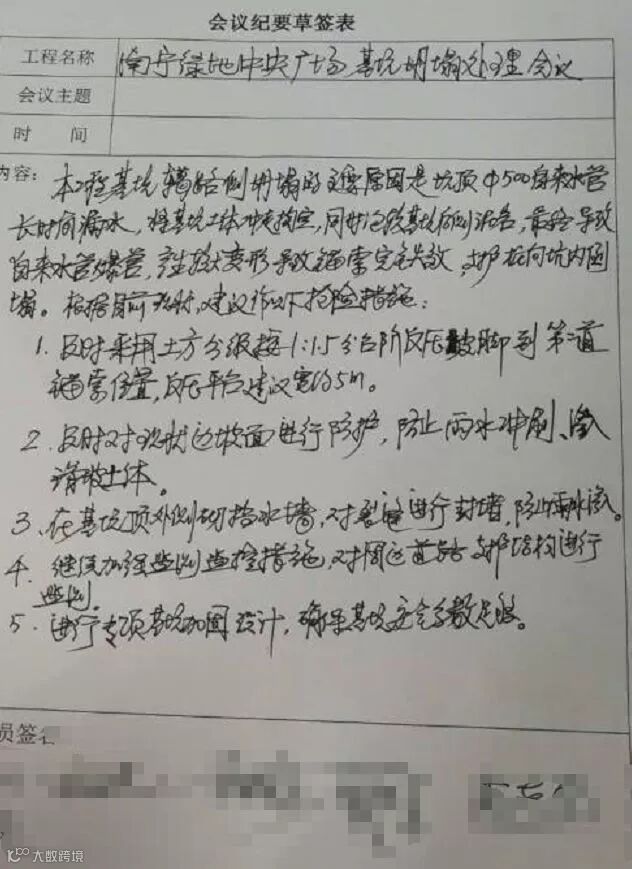 会议纪要草签表
工程名称 南宁绿地中央广场基坑坍塌处理会议
会议主题
时 间
内容: 本工程基坑 侧坍塌的主要原因是坑顶Φ500自来水管
长时间漏水,将基坑土体冲刷掏空,同时 基坑 ,最终导致
自来水管爆管,产生较大变形导致锚索完全失效,支护桩向坑内
塌。根据目前现状,建议作以下抢险措施:
1. 及时采用土方分级按1:1.5分台阶反压坡脚到第二道
锚索位置,反压平台建议宽约5m。
2. 及时对现状边坡面进行防护,防止雨水冲刷、渗入
滑坡土体。
3. 在基坑顶外侧砌挡水墙,对裂缝进行封堵,防止雨水渗入。
4. 继续加强监测监控措施,对周边道路、支护结构进行
监测。
5. 进行专项基坑加固设计,确保基坑安全系数足够。
员签名
大数跨境